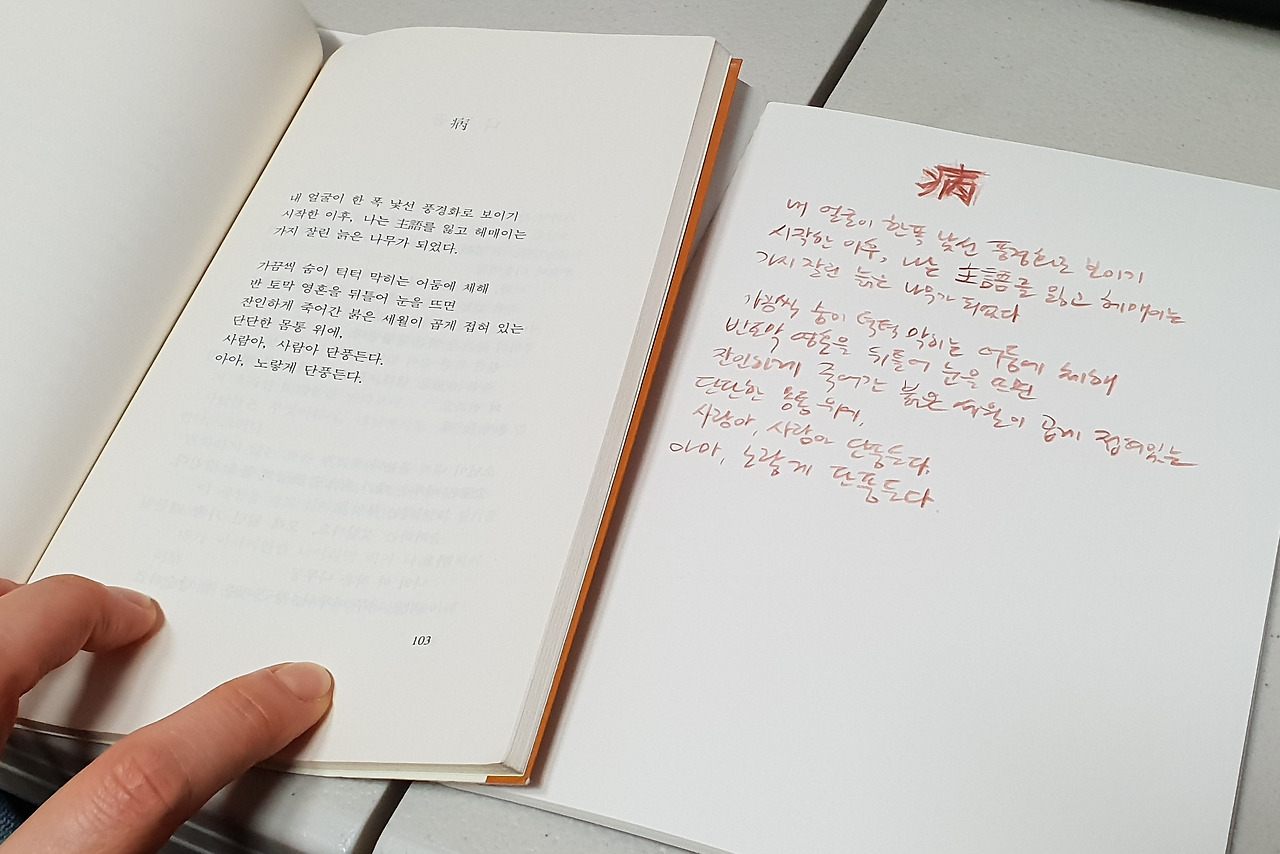 病
내 얼굴이 한 폭 낯선 풍경화로 보이기
시작한 이후, 나는 主語를 잃고 헤매이는
가지 잘린 늙은 나무가 되었다.
가끔씩 숨이 턱턱 막히는 어둠에 체해
반 토막 영혼을 뒤틀어 눈을 뜨면
잔인하게 죽어간 붉은 세월이 곱게 접혀 있는
단단한 몸통 위에,
사람아, 사람아 단풍든다.
아아, 노랗게 단풍든다.
103
病
내 얼굴이 한폭 낯선 풍경화로 보이기
시작한 이후, 나는 主語를 잃고 헤매이는
가지 잘린 늙은 나무가 되었다
가끔씩 숨이 턱턱 막히는 어둠에 체해
반토막 영혼을 뒤틀어 눈을 뜨면
잔인하게 죽어간 붉은 세월이 곱게 접혀있는
단단한 몸통 위에,
사람아, 사람아 단풍든다.
아아, 노랗게 단풍든다.